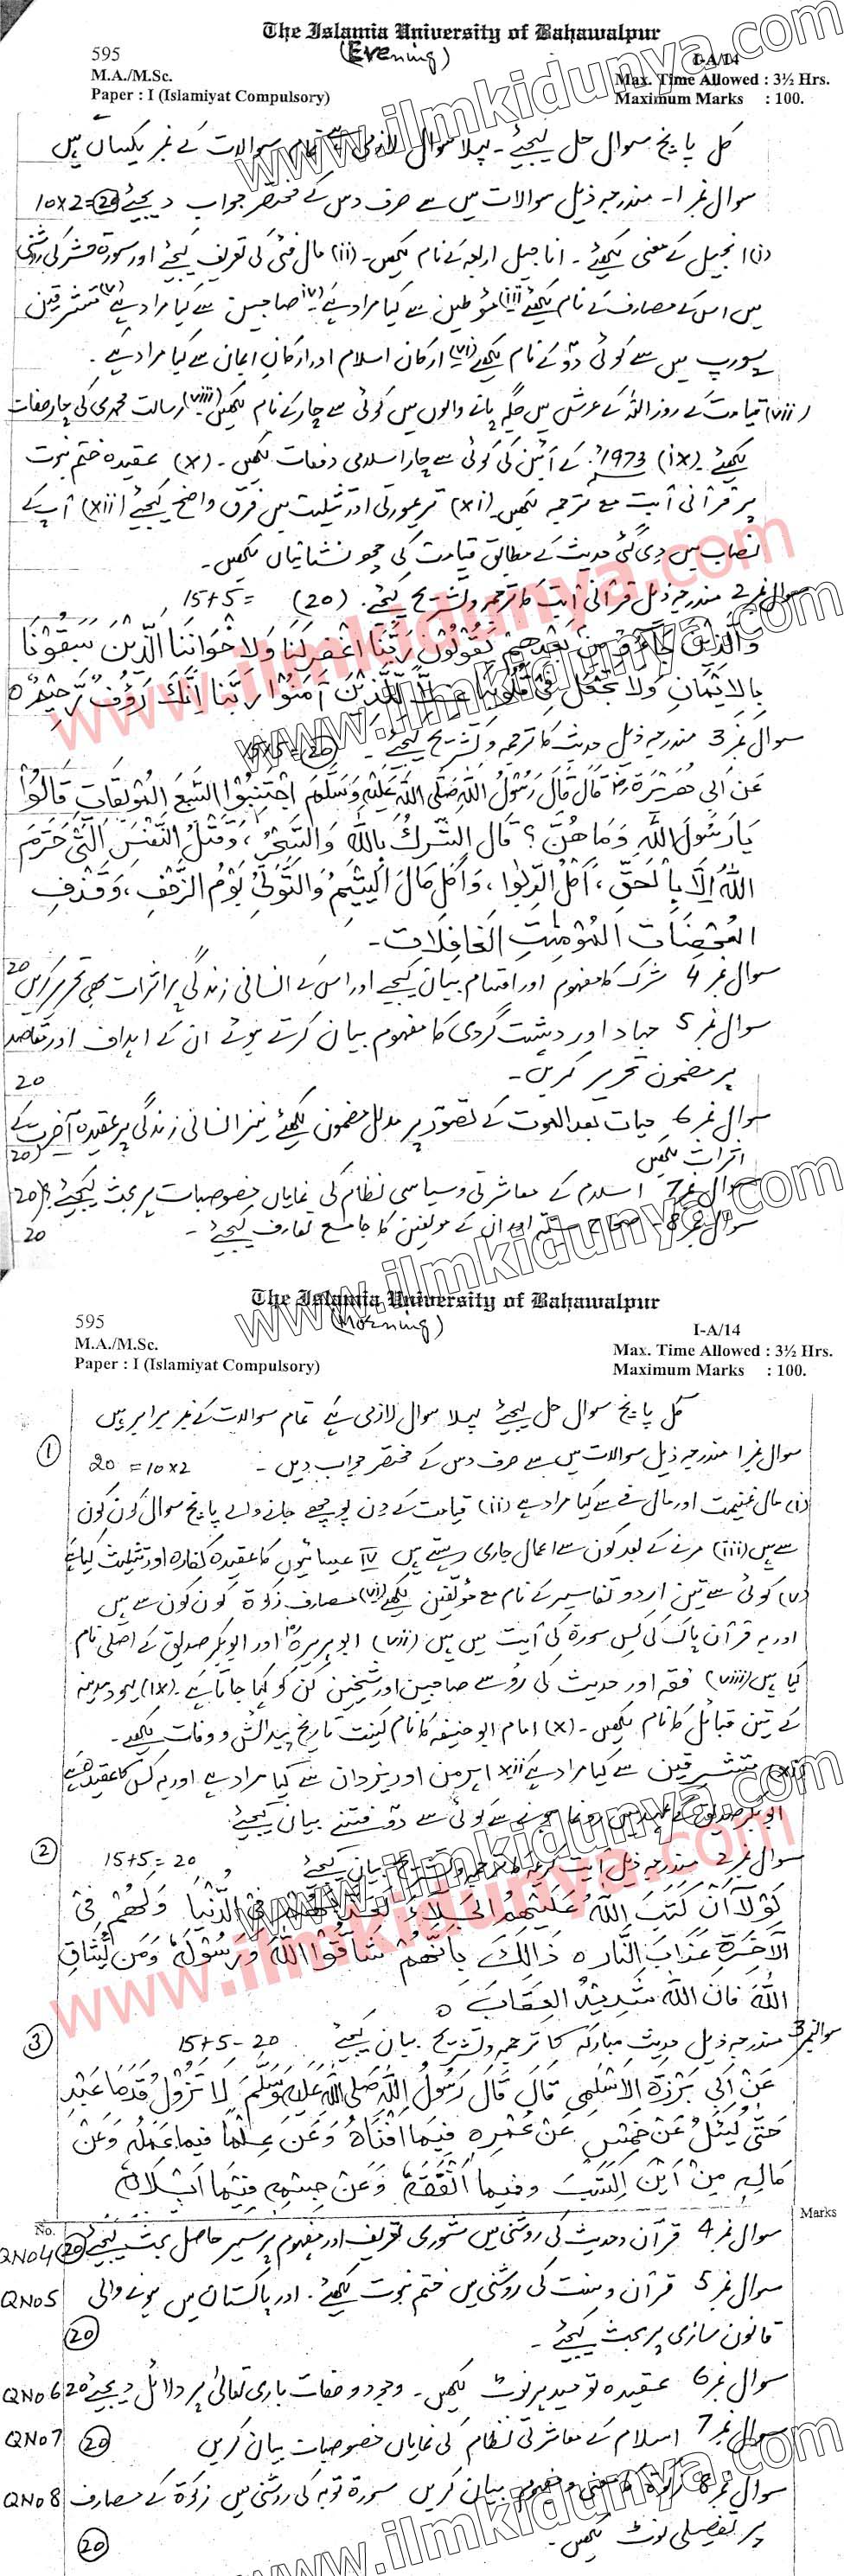 The Islamia University of Bahawalpur
(Evening)
595
I-A/14
M.A./M.Sc.
Max. Time Allowed : 3½ Hrs.
Paper : I (Islamiyat Compulsory)
Maximum Marks : 100.
کل پانچ سوال حل کیجیئے۔ پہلا سوال لازمی ہے تمام سوالات کے نمبر یکساں ہیں
سوال نمبر 1۔ مندرجہ ذیل سوالات میں سے صرف دس کے مختصر جواب دیجیئے 10x2=20
(i) انجیل کے معنی لکھیئے۔ اناجیل اربعہ کے نام لکھیں۔ (ii) مال فئی کی تعریف کیجیئے اور سورۃ حشر کی روشنی
میں اس کے مصارف کے نام لکھیئے (iii) مؤطین سے کیا مراد ہے (iv) صاحبین سے کیا مراد ہے (v) مستشرقین
یورپ میں سے کوئی دو کے نام لکھیے (vi) ارکان اسلام اور ارکان ایمان سے کیا مراد ہے۔
(vii) قیامت کے روز اللہ کے عرش میں جگہ پانے والوں میں کوئی سے چار کے نام لکھیں (viii) رسالت محمدی کی چار صفات
لکھیئے (ix) 1973ء کے آئین کی کوئی سے چار اسلامی دفعات لکھیں۔ (x) عقیدہ ختم نبوت
پر قرآنی آیت مع ترجمہ لکھیں۔ (xi) تریمورتی اور تثلیث میں فرق واضح کیجیئے (xii) آپ کے
نصاب میں دی گئی حدیث کے مطابق قیامت کی چھ نشانیاں لکھیں۔
سوال نمبر 2 مندرجہ ذیل قرآنی آیت کا ترجمہ و تشریح کیجیے۔ (20) = 15+5
وَالَّذِيْنَ جَآءُوْ مِنْ بَعْدِهِمْ يَقُوْلُوْنَ رَبَّنَا اغْفِرْلَنَا وَلِاِخْوَانِنَا الَّذِيْنَ سَبَقُوْنَا
بِالْاِيْمَانِ وَلَا تَجْعَلْ فِيْ قُلُوْبِنَا غِلًّا لِّلَّذِيْنَ آمَنُوْا رَبَّنَا اِنَّكَ رَؤُفٌ رَّحِيْمٌ
سوال نمبر 3 مندرجہ ذیل حدیث کا ترجمہ و تشریح کیجیئے۔ 15+5=20
عَنْ اَبِي هُرَيْرَةَ قَالَ قَالَ رَسُوْلُ اللهِ صَلَّى اللهُ عَلَيْهِ وَسَلَّمَ اجْتَنِبُوْا السَّبْعَ الْمُوْبِقَاتِ قَالُوْا
يَا رَسُوْلَ اللهِ وَمَا هُنَّ؟ قَالَ الشِّرْكُ بِاللهِ وَالسِّحْرُ، وَقَتْلُ النَّفْسِ الَّتِيْ حَرَّمَ
اللهُ اِلَّا بِالْحَقِّ، اَكْلُ الرِّبٰوا، وَاَكْلُ مَالَ الْيَتِيْمِ وَالتَّوَلِّيْ يَوْمَ الزَّحْفِ، وَقَذْفِ
الْمُحْصَنَاتِ الْمُؤْمِنٰتِ الْغَافِلَات۔
سوال نمبر 4 شرک کا مفہوم اور اقسام بیان کیجیے اور اس کے انسانی زندگی پر اثرات بھی تحریر کریں 20
سوال نمبر 5 جہاد اور دہشت گردی کا مفہوم بیان کرتے ہوئے ان کے اہداف اور مقاصد
پر مضمون تحریر کریں۔ 20
سوال نمبر 6 حیات بعد الموت کے تصور پر مدلل مضمون لکھیئے نیز انسانی زندگی پر عقیدہ آخرت کے
اثرات لکھیں (20)
سوال نمبر 7 اسلام کے معاشرتی و سیاسی نظام کی نمایاں خصوصیات پر بحث کیجیئے؟ (20)
سوال نمبر 8۔ صحاح ستہ اور ان کے مولفین کا جامع تعارف کیجیئے۔ 20
The Islamia University of Bahawalpur
(Morning)
595
I-A/14
M.A./M.Sc.
Max. Time Allowed : 3½ Hrs.
Paper : I (Islamiyat Compulsory)
Maximum Marks : 100.
کل پانچ سوال حل کیجیئے پہلا سوال لازمی ہے تمام سوالات کے نمبر برابر ہیں
① سوال نمبر 1 مندرجہ ذیل سوالات میں سے صرف دس کے مختصر جواب دیں۔ 20 = 10x2
(i) مال غنیمت اور مال فے سے کیا مراد ہے (ii) قیامت کے دن پوچھے جانے والے پانچ سوال کون کون
سے ہیں (iii) مرنے کے بعد کون سے اعمال جاری رہتے ہیں iv عیسائیوں کا عقیدہ کفارہ اور تثلیث کیا ہے
(v) کوئی سے تین اردو تفاسیر کے نام مع مؤلفین لکھیے (vi) مصارف زکوۃ کون کون سے ہیں
اور یہ قرآن پاک کی کس سورۃ کی آیت میں ہیں (vii) ابو ہریرہ اور ابوبکر صدیق کے اصلی نام
کیا ہیں (viii) فقہ اور حدیث کی رو سے صاحبین اور شیخین کن کو کہا جاتا ہے۔ (ix) یہود مدینہ
کے تین قبائل کا نام لکھیں۔ (x) امام ابو حنیفہ کا نام کنیت تاریخ پیدائش و وفات لکھیے۔
xi مستشرقین سے کیا مراد ہے xii اہرمن اور یزدان سے کیا مراد ہے اور یہ کس کا عقیدہ ہے
ابوبکر صدیق کے عہد میں رونما ہونے سے کوئی سے دو فتنے بیان کیجیئے۔
② سوال نمبر 2 مندرجہ ذیل آیت کریمہ کا ترجمہ و تشریح بیان کیجیئے 15+5=20
لَوْلَآ اَنْ كَتَبَ اللهُ عَلَيْهِمُ الْجَلَآءَ لَعَذَّبَهُمْ فِي الدُّنْيَا وَلَهُمْ فِيْ
الْآخِرَةِ عَذَابَ النَّارِ ذَالِكَ بِاَنَّهُمْ شَاقُّوْا اللهَ وَرَسُوْلَهٗ وَمَنْ يُّشَاقِّ
اللهَ فَاِنَّ اللهَ شَدِيْدُ الْعِقَابِ
③ سوال نمبر 3 مندرجہ ذیل حدیث مبارکہ کا ترجمہ و تشریح بیان کیجیئے 15+5-20
عَنْ اَبِيْ بَرْزَةَ الْاَسْلَمِي قَالَ قَالَ رَسُوْلُ اللهِ صَلَّى اللهُ عَلَيْهِ وَسَلَّمَ لَا تَزُوْلُ قَدَمَا عَبْدٍ
حَتّٰى يُسْئَلَ عَنْ خَمْسٍ عَنْ عُمْرِهٖ فِيْمَا اَفْنَاهُ وَعَنْ عِلْمِهٖ فِيْمَا عَمِلَهُ وَعَنْ
مَالِهٖ مِنْ اَيْنَ اكْتَسَبَ وفيما اَنْفَقَهٗ وَعَنْ جِسْمِهٖ فِيْمَا اَبْلَاهُ
No.
Marks
QNo4 سوال نمبر 4 قرآن و حدیث کی روشنی میں شوری تعریف اور مفہوم پر سیر حاصل بحث کیجیئے 20
QNo5 سوال نمبر 5 قرآن و سنت کی روشنی میں ختم نبوت لکھیئے۔ اور پاکستان میں ہونے والی
قانون سازی پر بحث کیجیئے۔ 20
QNo6 سوال نمبر 6 عقیدہ توحید پر نوٹ لکھیں۔ وجود و صفات باری تعالیٰ پر دلائل دیجیئے 20
QNo7 سوال نمبر 7 اسلام کے معاشرتی نظام کی نمایاں خصوصیات بیان کریں 20
QNo8 سوال نمبر 8 زکوۃ کا معنی و مفہوم بیان کریں سورۃ توبہ کی روشنی میں زکوۃ کے مصارف
پر تفصیلی نوٹ لکھیں۔ 20
www.ilmkidunya.com
www.ilmkidunya.com
www.ilmkidunya.com
www.ilmkidunya.com
www.ilmkidunya.com
www.ilmkidunya.com